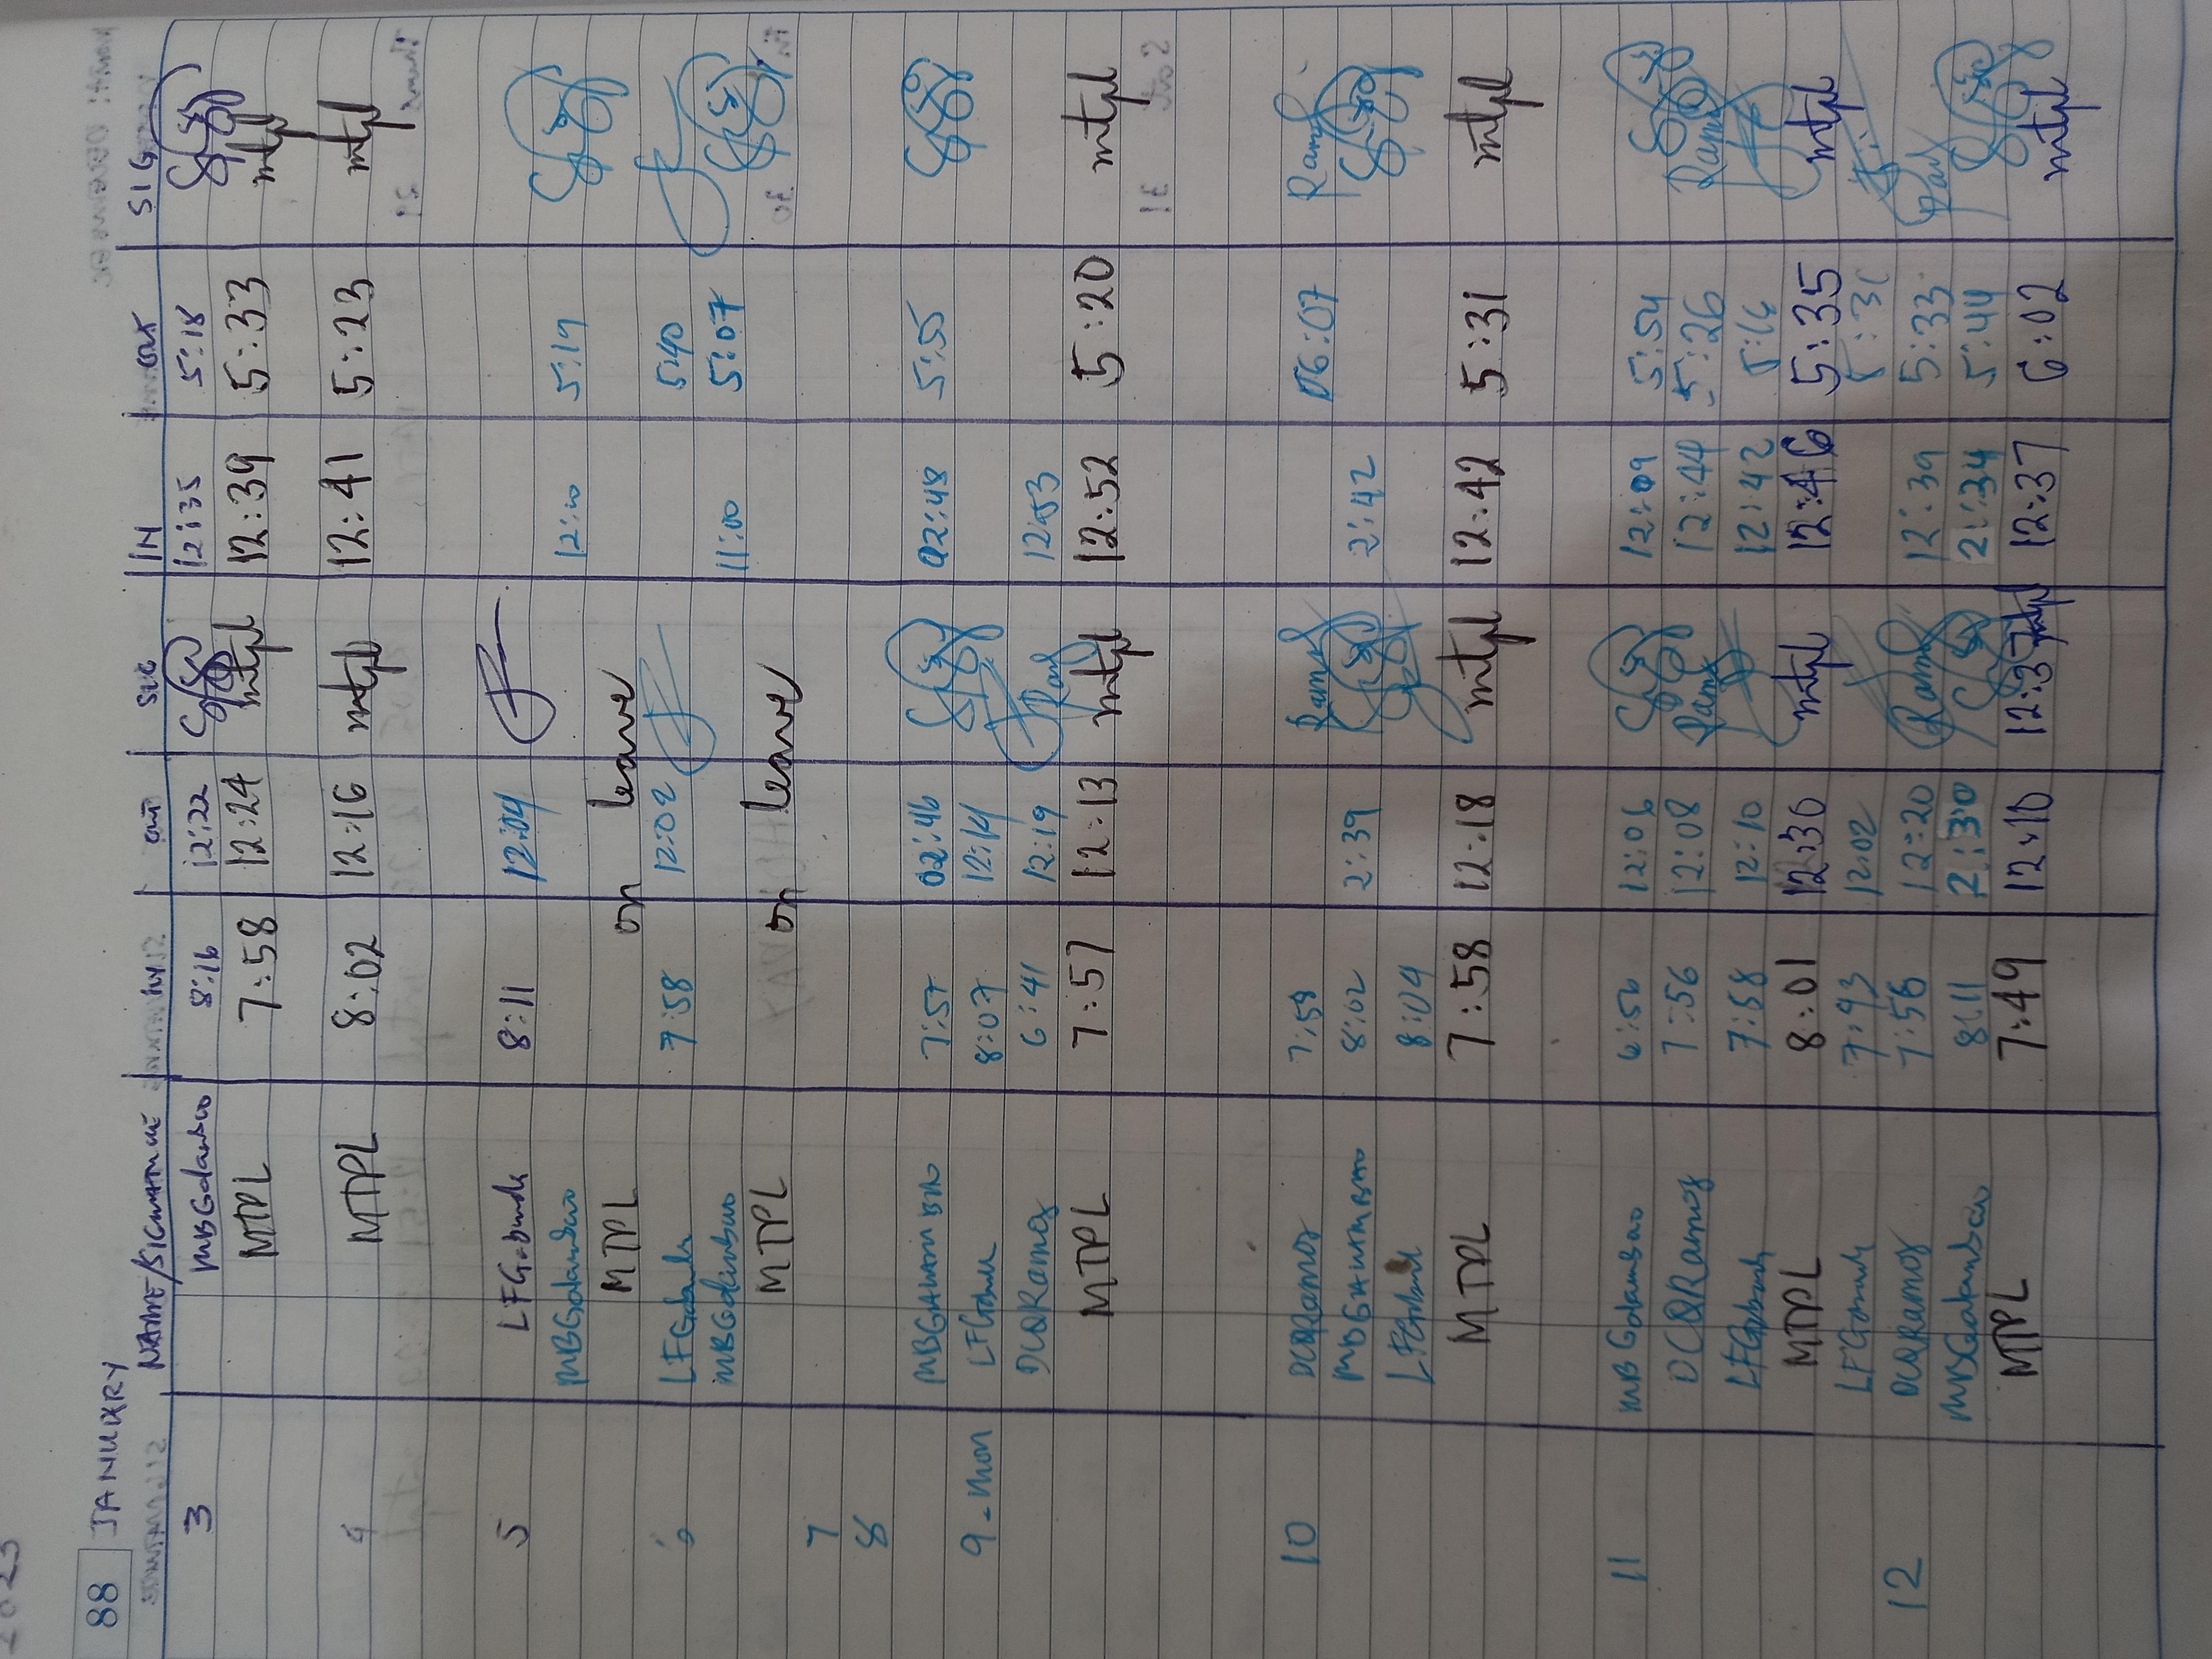 2023
88 JANUARY
NAME/SIGNATURE IN OUT SIG IN OUT SIG
3 MBGalambao 8:16 12:22 12:35 5:18
MTPL 7:58 12:24 mtpl 12:39 5:33 mtpl
4 MTPL 8:02 12:16 mtpl 12:41 5:23 mtpl
5 LFG 8:11 12:04
MBGalambao 12:10 5:19
MTPL on leave
6 LFG 7:58 12:02 5:40
MBGalambao 11:00 5:07
MTPL on leave
7
8
MBGALAMBAO 7:57 02:46 02:48 5:55
9-mon LFG 8:07 12:14
DCQRamos 6:41 12:19 12:53
MTPL 7:57 12:13 mtpl 12:52 5:20 mtpl
10 DCQRamos 7:59 Ramos 06:07 Ramos
MBGALAMBAO 8:02 2:39 2:42
LFG 8:04
MTPL 7:58 12:18 mtpl 12:42 5:31 mtpl
11 MBGalambao 6:56 12:06 12:09 5:54
DCQRamos 7:56 12:08 Ramos 12:44 5:26 Ramos
LFG 7:58 12:10 12:42 5:16
MTPL 8:01 12:30 mtpl 12:46 5:35 mtpl
LFG 12:02
12 DCQRamos 7:56 12:20 Ramos 12:39 5:33
MBGalambao 8:11 2:30 2:34 5:44
MTPL 7:49 12:10 12:37 mtpl 12:37 6:02 mtpl